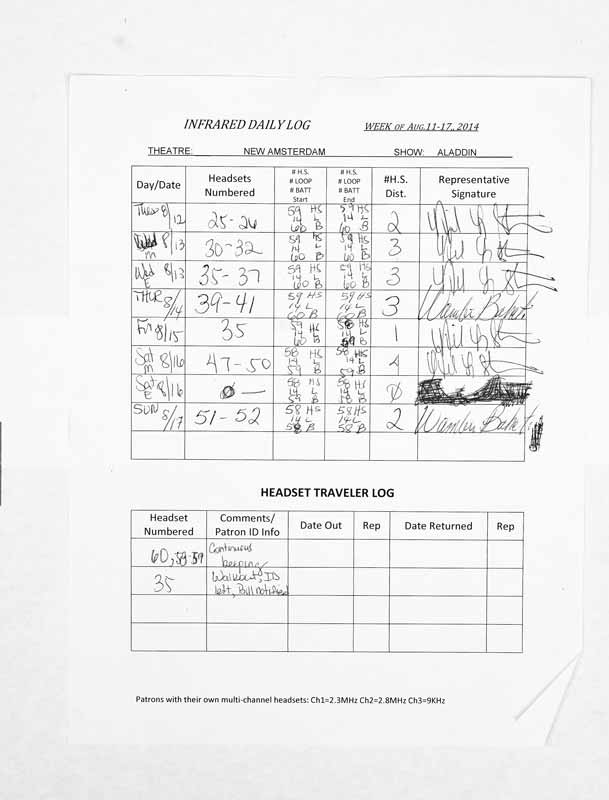 INFRARED DAILY LOG WEEK OF AUG.11-17, 2014
THEATRE: NEW AMSTERDAM SHOW: ALADDIN
Day/Date Headsets Numbered # H.S. # LOOP # BATT Start # H.S. # LOOP # BATT End #H.S. Dist. Representative Signature
Tues 8/12 25-26 59 HS 14 L 60 B 59 HS 14 L 60 B 2
Wed 8/13 M 30-32 59 HS 14 L 60 B 59 HS 14 L 60 B 3
Wed 8/13 E 35-37 59 HS 14 L 60 B 59 HS 14 L 60 B 3
THUR 8/14 39-41 59 HS 14 L 60 B 59 HS 14 L 60 B 3
Fri 8/15 35 59 HS 14 L 60 B 58 HS 14 L 59 B 1
Sat 8/16 M 47-50 58 HS 14 L 59 B 58 HS 14 L 59 B 4
Sat 8/16 E Ø — 58 HS 14 L 59 B 58 HS 14 L 58 B Ø
SUN 8/17 51-52 58 HS 14 L 58 B 58 HS 14 L 58 B 2
HEADSET TRAVELER LOG
Headset Numbered Comments/ Patron ID Info Date Out Rep Date Returned Rep
60, 58-59 Continuous beeping
35 Walkout, ID left, Bill notified
Patrons with their own multi-channel headsets: Ch1=2.3MHz Ch2=2.8MHz Ch3=9KHz